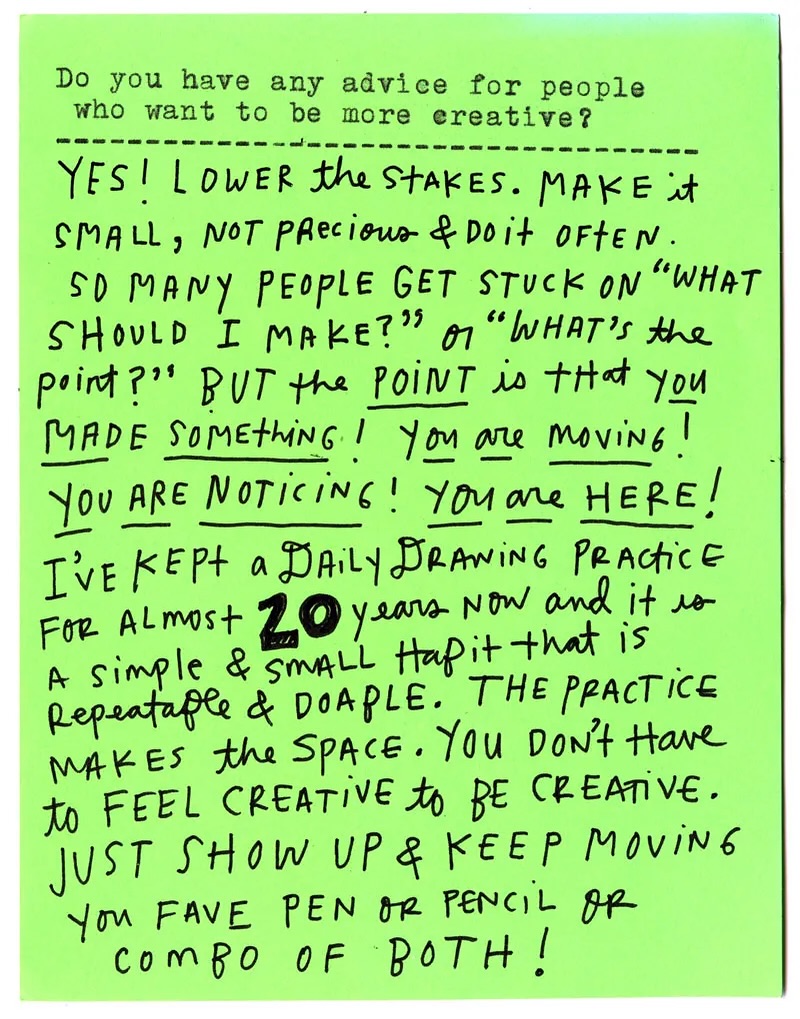 Do you have any advice for people
who want to be more creative?
YES! LOWER the STAKES. MAKE it
SMALL, NOT PRecious & DO it OFTEN.
SO MANY PEOPLE GET STUCK ON “WHAT
SHOULD I MAKE?” or “WHAT'S the
point?” BUT the POINT is tHat you
MADE SOMEthiNG! You are MOVING!
YOU ARE NOTICING! You are HERE!
I'VE KEPt a DAiLY DRAWING PRActiCE
FOR ALMOSt 20 years NOW and it is
A simple & SMALL HaBit that is
Repeatable & DOABLE. THE PRACTICE
MAKES the SPACE. YOU DON't Have
to FEEL CREATIVE to BE CREATIVE.
JUST SHOW UP & KEEP MOVING
you FAVE PEN OR PENCIL OR
COMBO OF BOTH!